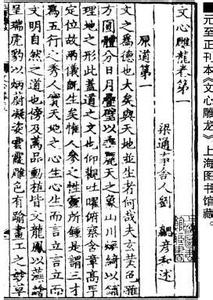 元至正刊本《文心雕龙》,上海图书馆藏。
文心雕龍卷第一
梁通事舍人劉 勰彦和述
原道第一
文之為德也大矣與天地並生者何哉夫玄黃色雜
方圓體分日月疊璧以垂麗天之象山川煥綺以鋪
理地之形此蓋道之文也仰觀吐曜俯察含章高卑
定位故兩儀既生矣惟人參之性靈所鍾是謂三才
為五行之秀人實天地之心生心生而言立言立而
文明自然之道也傍及萬品動植皆文龍鳳以藻繪
呈瑞虎豹以炳蔚凝姿雲霞雕色有踰畫工之妙草